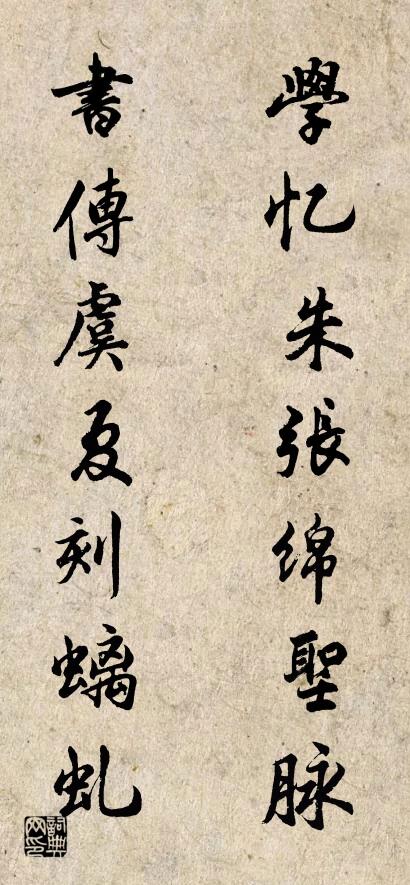 學忆朱張绵聖脉
書傳虞夏刻螭虬
詞典网印